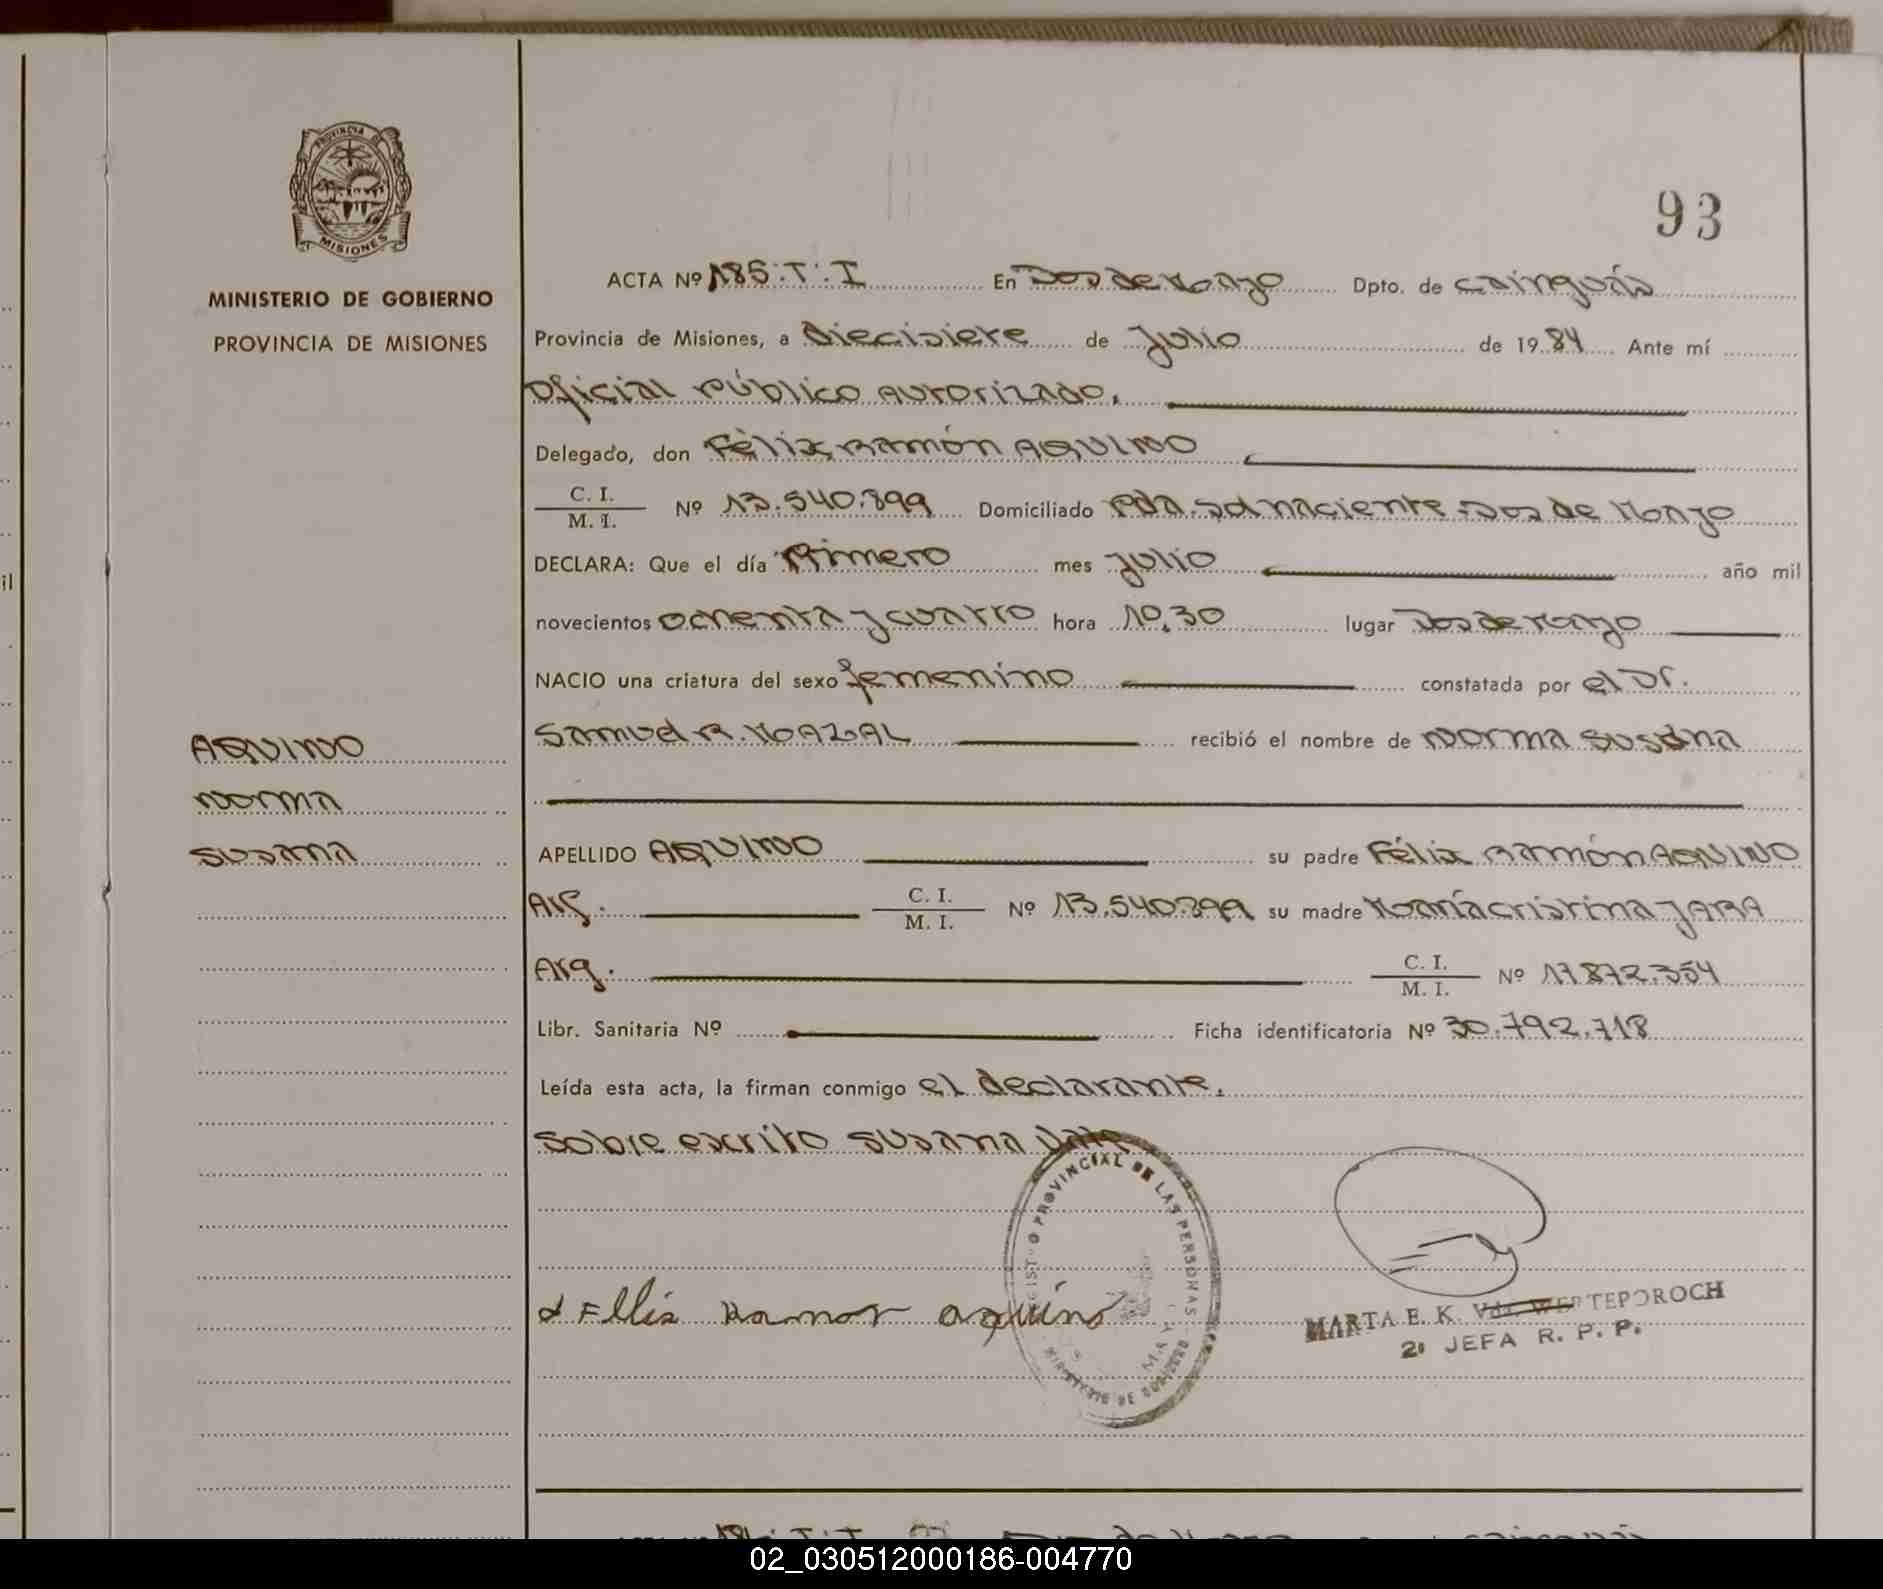 PROVINCIA DE
MISIONES
MINISTERIO DE GOBIERNO
PROVINCIA DE MISIONES
AQUINO
Norma
Susana
93
ACTA Nº 185.T.I En Dos de Mayo Dpto. de Cainguás
Provincia de Misiones, a Diecisiete de Julio de 1984 Ante mí
Oficial Público Autorizado.
Delegado, don Félix Ramón AQUINO
C. I.
M. I. Nº 13.540.899 Domiciliado Pda. Sol naciente Dos de Mayo
DECLARA: Que el día Primero mes Julio año mil
novecientos ochenta y cuatro hora 10,30 lugar Dos de Mayo
NACIO una criatura del sexo femenino constatada por el Dr.
Samuel R. MAZAL recibió el nombre de Norma Susana
APELLIDO AQUINO su padre Félix Ramón AQUINO
Arg. C. I.
M. I. Nº 13.540.899 su madre María Cristina JARA
Arg. C. I.
M. I. Nº 17.872.354
Libr. Sanitaria Nº Ficha identificatoria Nº 30.792.718
Leída esta acta, la firman conmigo el declarante.
Sobre escrito Susana Vale
PROVINCIAL DE LAS PERSONAS
Ramon aquino
MARTA E. K. Vda. WERTEPOROCH
2ª JEFA R. P. P.
il
02_030512000186-004770